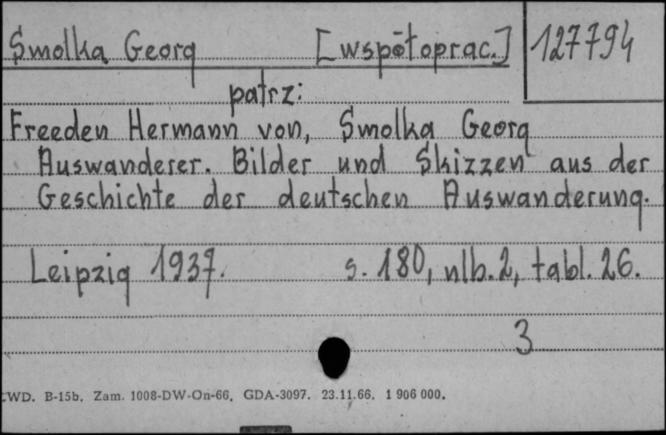 Smolka Georg [współoprac.] 127794
patrz:
Freeden Hermann von, Smolka Georg
Auswanderer. Bilder und Skizzen aus der
Geschichte der deutschen Auswanderung.
Leipzig 1937. s. 180, nlb. 2, tabl. 26.
3
WD. B-15b. Zam. 1008-DW-On-66. GDA-3097. 23.11.66. 1 906 000.